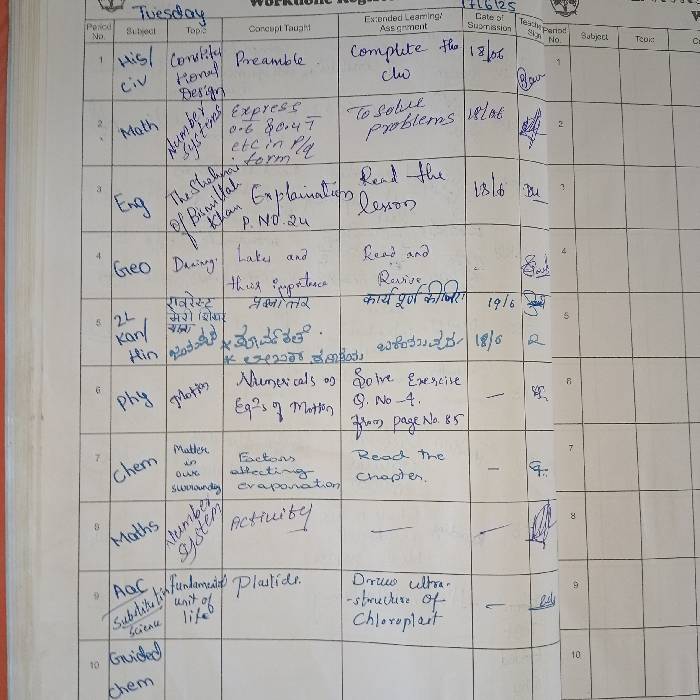 Tuesday
17/6/25
Period No. Subject Topic Concept Taught Extended Learning/ Assignment Date of Submission Teacher Sign
Period No. Subject Topic
1 His/ Civ Constitutional Design Preamble Complete the 18/06
2 Math Number Systems Express 0.6 & 0.47 etc in P/q form To solve problems 18/06
3 Eng The Shehnai of Bismillah Khan Explaination P.NO.24 Read the lesson 18/6
4 Geo Drainage Lakes and their importance Read and Revise -
5 2L Kan/ Hin एवरेस्ट मेरी शिखर यात्रा प्रश्नोत्तर कार्य पूर्ण कीजिए 19/6
18/6
6 Phy Motion Numericals on Eqns of Motion Solve Exercise Q. No-4. from page No. 85 -
7 Chem Matter in our surrounding Factors affecting evaporation Read the chapter. -
8 Maths Number System Activity - -
9 Substitution Science Fundamental unit of life Plastids. Draw ultra-structure of Chloroplast -
10 Guided Chem
1
2
3
4
5
6
7
8
9
10